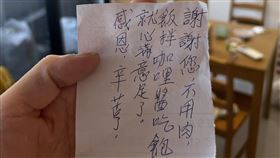 謝謝您不用肉，
飯拌咖哩醬吃飽
就心滿意足了。
感恩，辛苦了，